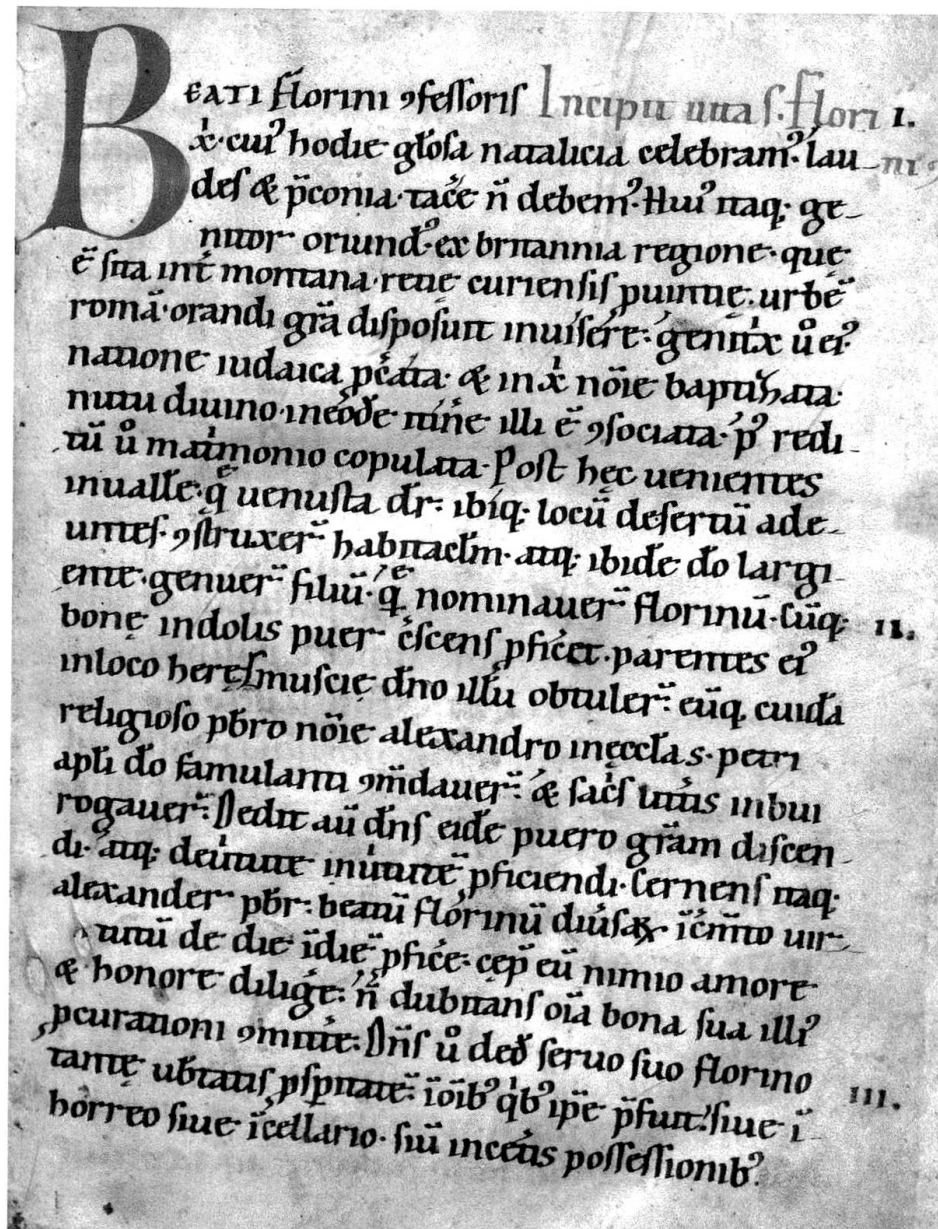 BEATI florini ꝯfessoris Incipit uita s. Flori I.
xp̄i· cuiꝰ hodie gl̄osa natalicia celebramꝰ· lau- niꝯ
des & p̄conia· tac̄e n̄ debemꝰ· Huiꝰ itaq; ge-
nitor oriundꝰ ex britannia regione· quę
ē sita int̄ montana retię curiensis ꝓuintię· urbē
romā· orandi gr̄a disposuit inuisere· genitͥx ůo eiꝰ
natione iudaica ꝓc̄ata· & in xp̄i nōie baptizata·
nutu diuino ineōdē itin̄e illi ē ꝯsociata· pꝰ redi
tū ůo matͥmonio copulata· Post hęc uenientes
inuallē· q̄ uenusta dr̄· ibiq; locū desertū ade-
untes· ꝯstruxer̄ habitac̄lm· atq; ibidē dō largi-
ente· genuer̄ filiū· quē nominauer̄ florinū· Cūq; II.
bonę indolis puer c̄scens ꝓficeret· parentes eiꝰ
inloco
 dn̄o illū obtuler̄· eūq; cuidā
religioso pb̄ro nōie alexandro inęccl̄a s· petri
apl̄i dō famulanti ꝯm̄dauer̄· & sac̄s litt̄is inbui
rogauer̄· Dedit aū dn̄s eidē puero gr̄am discen-
di· atq; deuirtute inuirtutē ꝓficiendi· Cernens itaq;
alexander pb̄r· beatū florinū diuīsaꝝ īc̄mto uir-
tutū de die īdiē ꝓfic̄e· cep̄ eū nimio amore
& honore diliḡe· n̄ dubitans oīa bona sua illiꝰ
ꝓcurationi ꝯmitt̄e· Dn̄s ůo dedͭ seruo suo florino
tantę ub̄tatis ꝓsp̄itatē· īōibꝰ qͥbꝰ ip̄e p̄fuit· siue ī III.
horreo siue īcellario· siū incet̄is possessionibꝰ